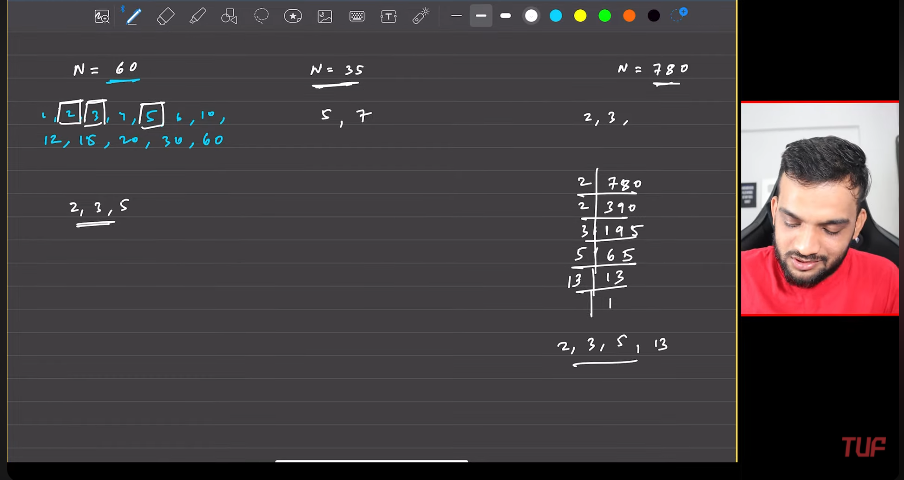 N = 60
1, 2, 3, 4, 5, 6, 10,
12, 15, 20, 30, 60
2, 3, 5
N = 35
5, 7
N = 780
2, 3,
2 780
2 390
3 195
5 65
13 13
1
2, 3, 5, 13
TUF